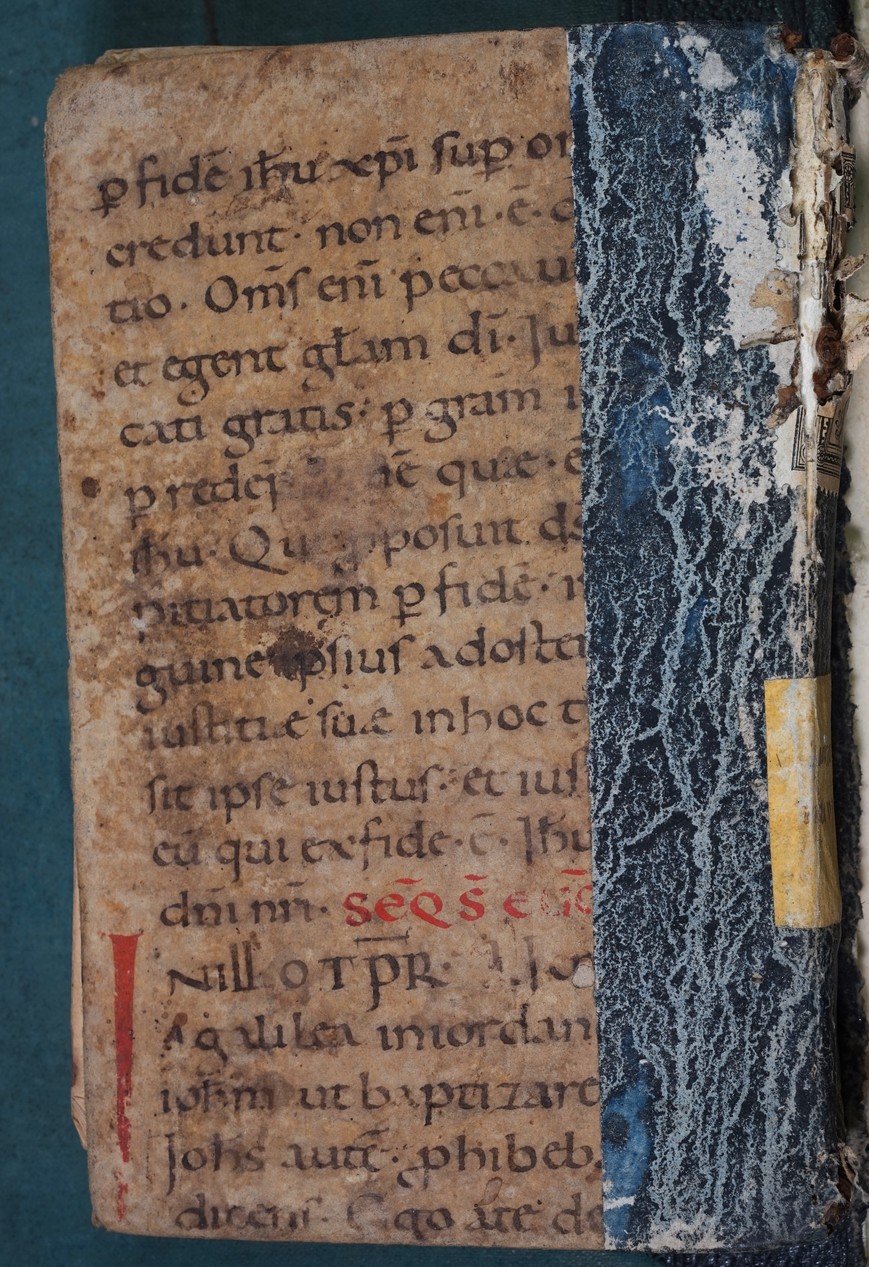 ꝑ fidē ih̄u xp̄i suꝑ om
credunt· non eni̅·ē·
tio· Om̅s eni̅ pecca
et egent gl̅am di̅· Ju
cati gratis· ꝑ gra̅m
ꝑ rede̅p ne̅ quae·ē
ih̄u· Qu posuit ds
pitiatorem ꝑ fidē· i
guine ipsius ad osten
iustitiæ suæ in hoc t
sit ipse iustus· et ius
eu̅ qui ex fide·ē· Ih̄u
dn̅i nr̅i· SEQ̅ S̅ E
IN ILLO TP̅R·
A galilea in iordan
ioh̅m ut baptizare
Joh̅s aute̅· ꝓhibeb
dicens· Ego a te de